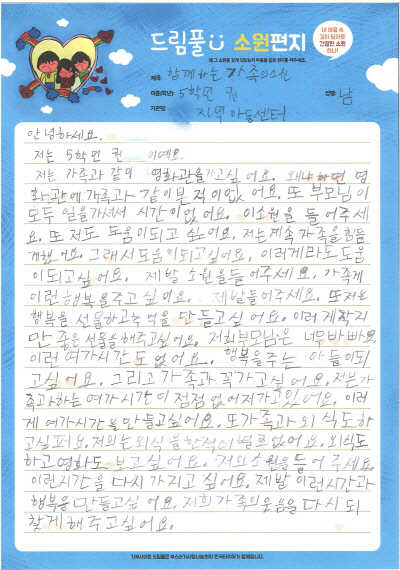 드림풀 소원편지
내 마음 속
깊이 담아둔
간절한 소원
하나!
왜 그 소원을 갖게 되었는지 마음을 담은 편지를 써주세요.
제목: 함께하는 가족의소원
이름(학년): 5학년 권 성별: 남
기관명: 지역아동센터
안녕하세요.
저는 5학년 권 이예요.
저는 가족과 같이 영화관을가고싶어요. 왜냐하면 영
화관에가족과같이본적이없어요. 또 부모님이
모두 일을가셔서 시간이없어요. 이소원을 들어주세
요. 또 저도 도움이되고 싶어요. 저는계속 가족을힘들
게했어요. 그래서도움이되고싶어요. 이러게라도도움
이되고싶어요. 제발 소원을들어주세요. 가족께
이런행복을주고 싶어요. 제발들어주세요. 또저는
행복을 선물하고추억을 만들고싶어요. 이러게작지
만 좋은 선물을해주고싶어요. 저희부모님은 너무바빠요.
이런여가시간도없어요. 행복을주는 아들이되
고싶어요. 그리고 가족과 꼭가고싶어요. 저는가
족과하는여가시간이점점없어져가고있어요. 이러
게 여가시간을만들고싶어요. 또가족과 외식도하
고싶퍼요. 저희는외식을한적이별로없어요. 외식도
하고영화도 보고싶어요. 저의소원을들어주세요.
이런시간을 다시가지고 싶어요. 제발 이런시간과
행복을만들고싶어요. 저희가족의웃음을다시되
찾게해주고싶어요.
기부사이트 드림풀은 부스러기사랑나눔회와 한국타이어가 함께합니다.